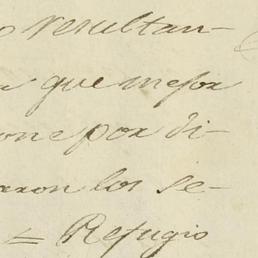 o resultan-
que mejor
one por di-
aron los se-
= Refugio